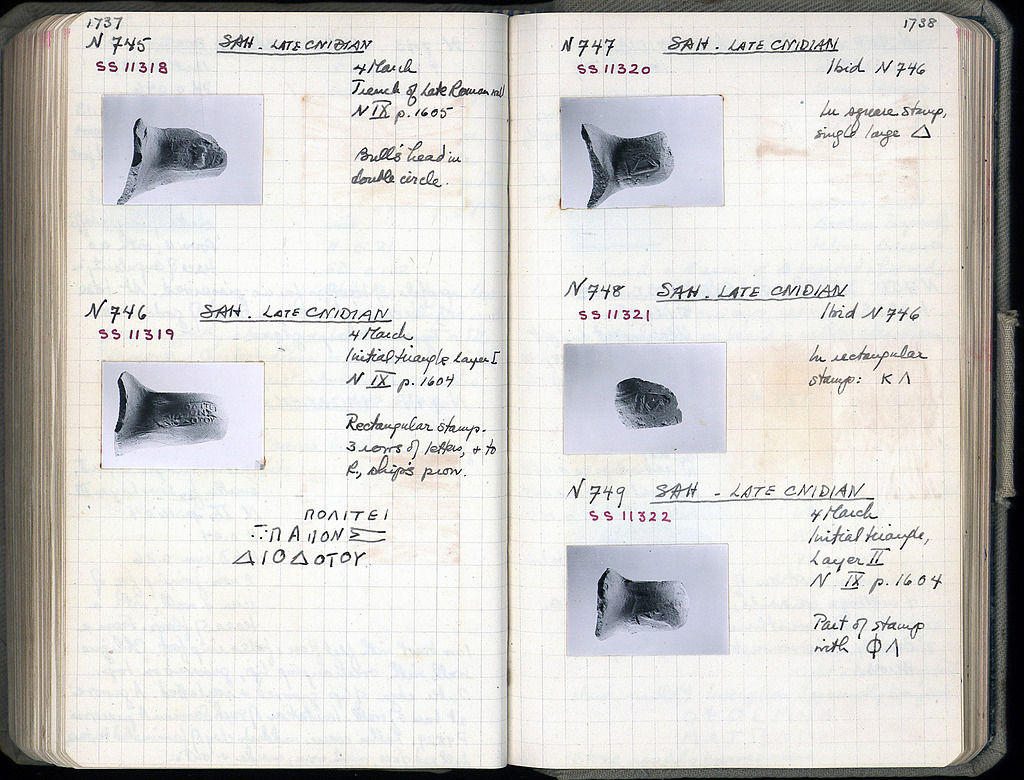 1737
N 745 SAH. LATE CNIDIAN
SS 11318
4 March
Trench of Late Roman wall
N IX p. 1605
Bull's head in
double circle.
N 746 SAH. LATE CNIDIAN
SS 11319
4 March
Initial triangle Layer I
N IX p. 1604
Rectangular stamp.
3 rows of letters, + to
R., ship's prow.
ΠΟΛΙΤΕΙ
ΠΑΠΟΝ
ΔΙΟΔΟΤΟΥ
1738
N 747 SAH. LATE CNIDIAN
SS 11320
Ibid N 746
In square stamp,
single large Δ
N 748 SAH. LATE CNIDIAN
SS 11321
Ibid N 746
In rectangular
stamp: Κ Λ
N 749 SAH - LATE CNIDIAN
SS 11322
4 March
Initial triangle,
Layer II
N IX p. 1604
Part of stamp
with Φ Λ